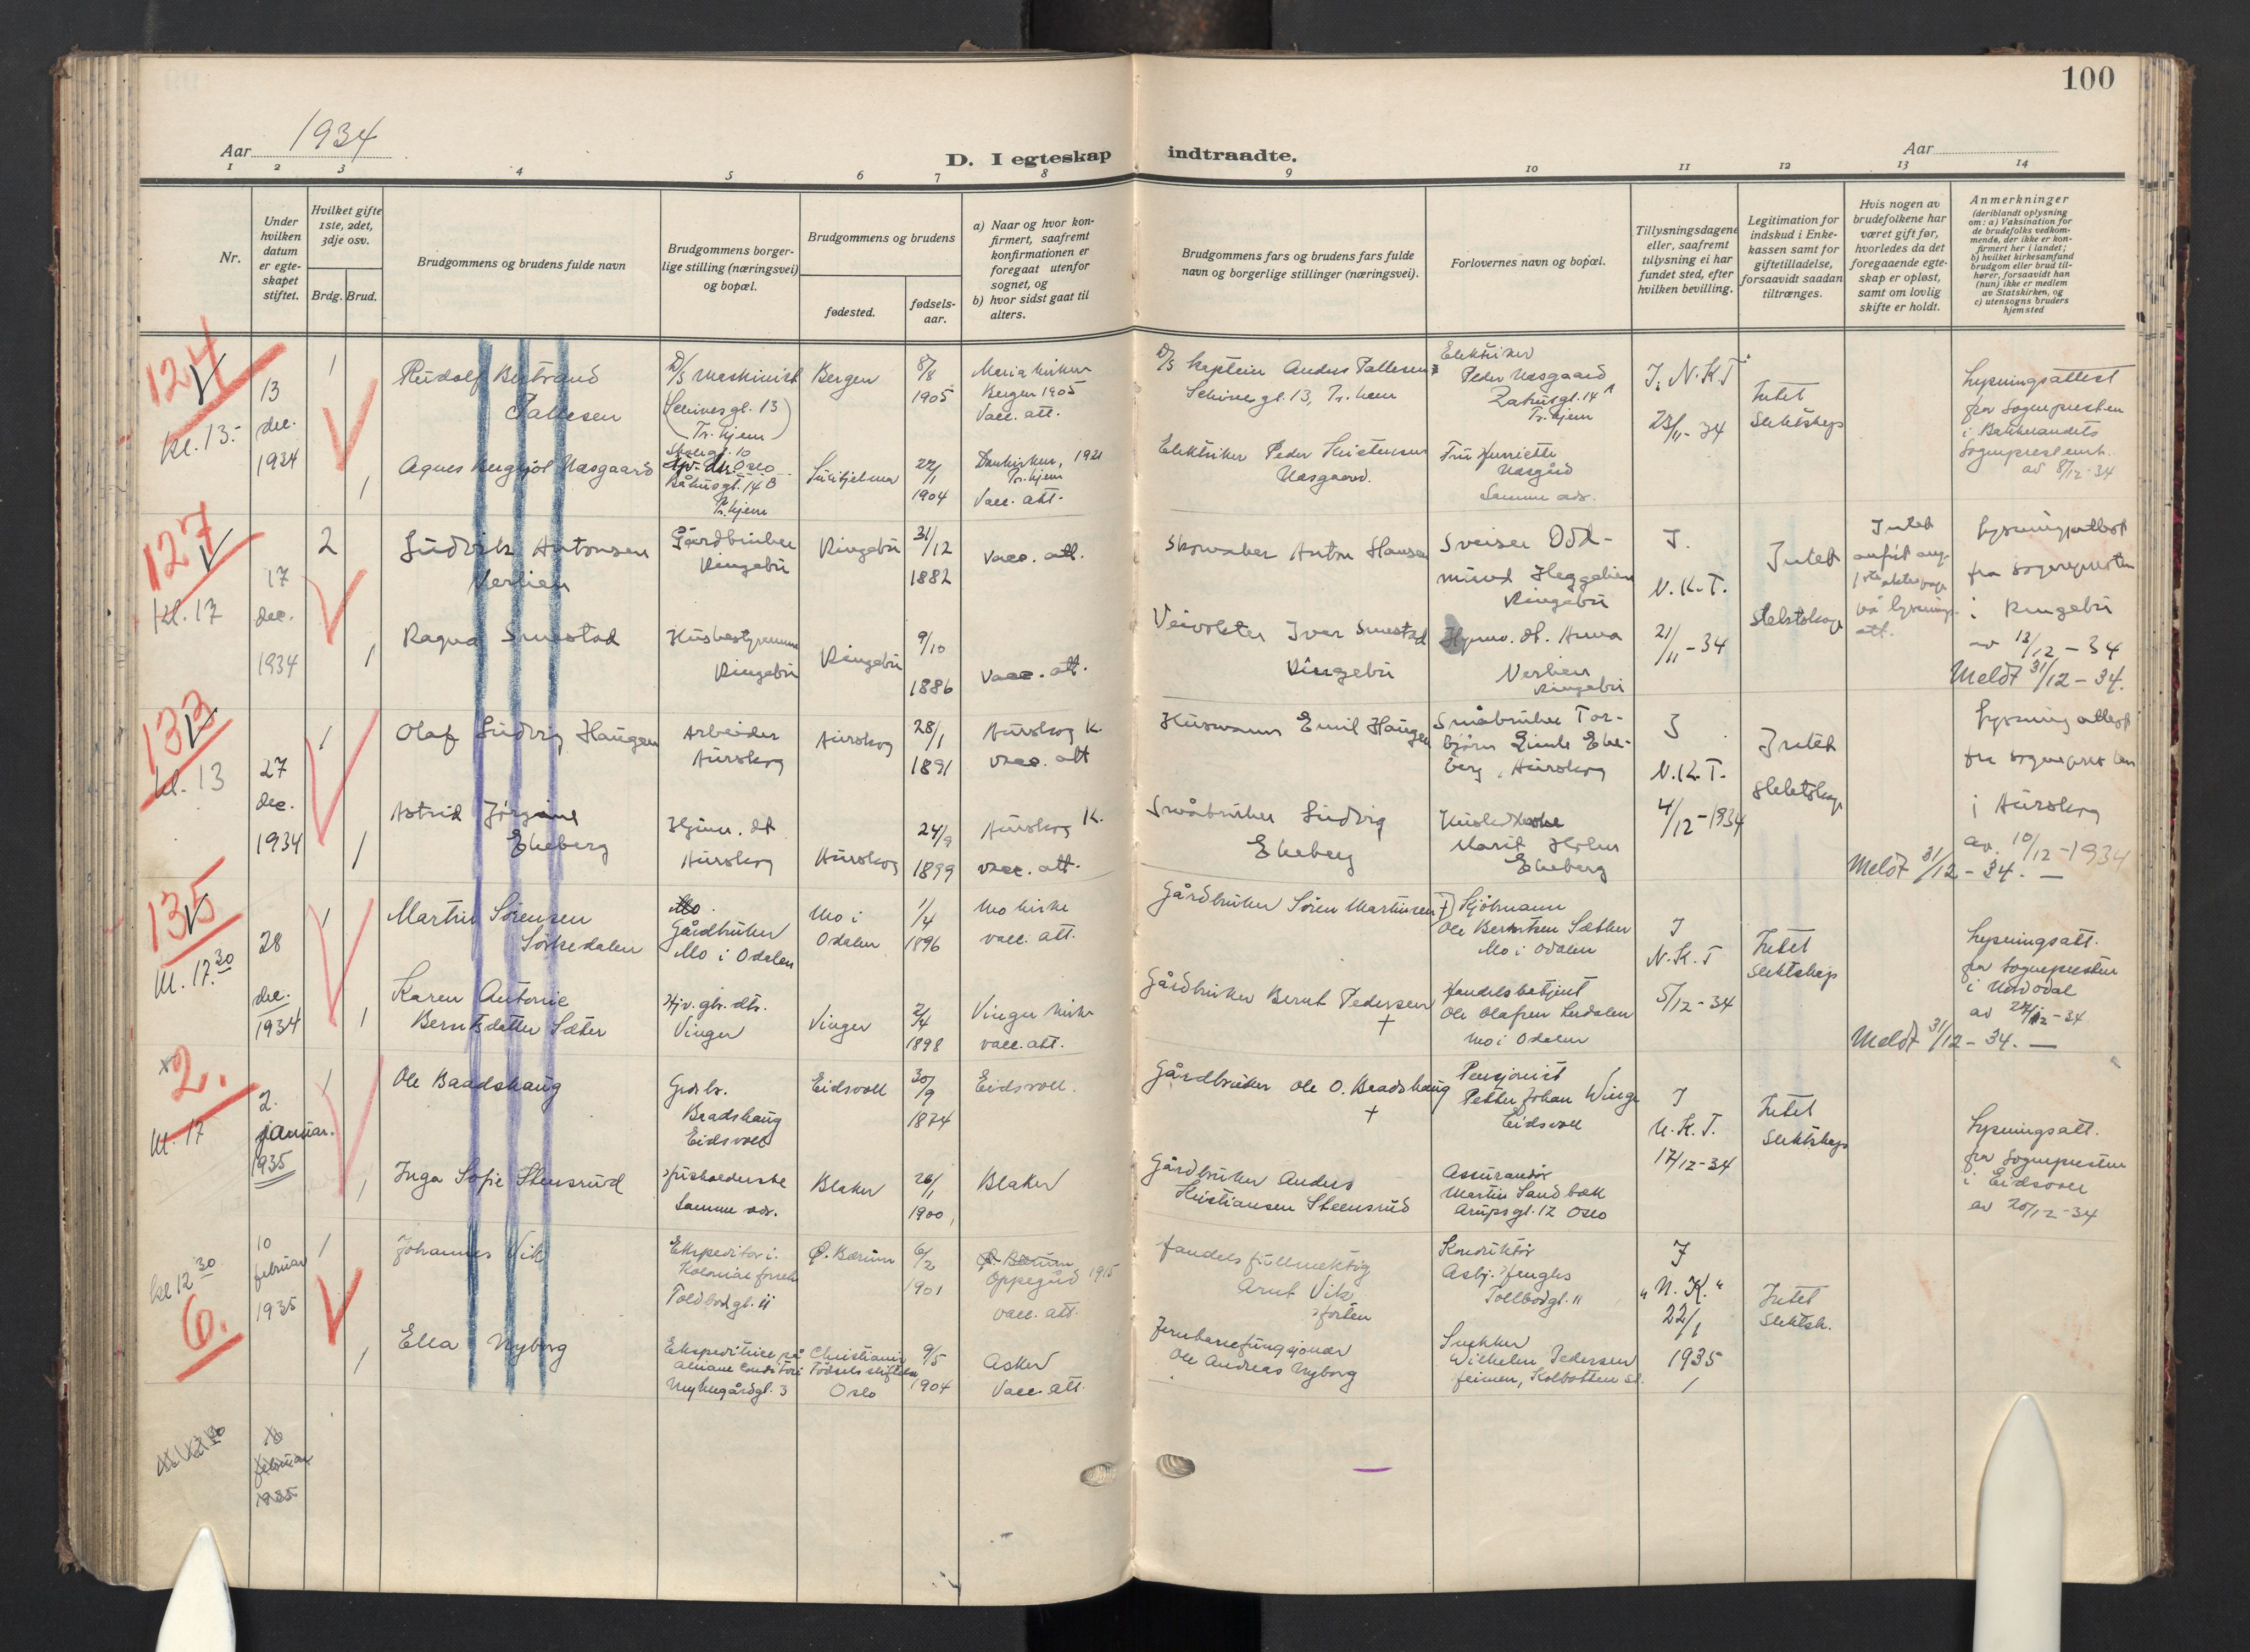 100
Aar 1934
D. I egteskap indtraadte.
Aar
1 2 3 4 5 6 7 8 9 10 11 12 13 14
Nr.
Under hvilken datum er egteskapet stiftet.
Hvilket gifte 1ste, 2det, 3dje osv.
Brdg. Brud.
Brudgommens og brudens fulde navn
Brudgommens borgerlige stilling (næringsvei) og bopæl.
Brudgommens og brudens
fødested.
fødselsaar.
a) Naar og hvor konfirmert, saafremt konfirmationen er foregaat utenfor sognet, og
b) hvor sidst gaat til alters.
Brudgommens fars og brudens fars fulde navn og borgerlige stillinger (næringsvei).
Forlovernes navn og bopæl.
Tillysningsdagene eller, saafremt tillysning ei har fundet sted, efter hvilken bevilling.
Legitimation for indskud i Enkekassen samt for giftetilladelse, forsaavidt saadan tiltrænges.
Hvis nogen av brudefolkene har været gift før, hvorledes da det foregaaende egteskap er opløst, samt om lovlig skifte er holdt.
Anmerkninger
(deriblandt oplysning om: a) Vaksination for de brudefolks vedkommende, der ikke er konfirmert her i landet;
b) hvilket kirkesamfund brudgom eller brud tilhører, forsaavidt han (hun) ikke er medlem av Statskirken, og
c) utensogns bruders hjemsted
124
kl. 13.-
13
dec.
1934
1
Rudolf
Pallesen
D/S Maskinist
Schives gt. 13
Tr. hjem
Bergen
8/8
1905
Maria kirken
Bergen 1905
Vacc. att.
D/S Kaptein Anders Pallesen
Schives gt. 13, Tr. hem
Elektriker
Peder Aasgaard
Tr. hjem
I. N.K.T
23/11-34
Intet
Slektskap
Lysningsattest
fra Sognepresten
i Bakkelandets
av 8/12-34
1
Agnes Bergljot Aasgaard
Oslo
Båhusgt. 14 B
Tr. hjem
Sulitjelma
22/1
1904
Domkirken, 1921
Tr. hjem
Vacc. att.
Elektriker Peder Kristensen
Aasgaard.
Fru Henriette
Aasgård
Samme adr.
127
kl. 13
17
dec.
1934
2
Ludvik Antonsen
Verlien
Gårdbruker
Ringebu
Ringebu
31/12
1882
vacc. att.
Skomaker Anton Hansen
Sveiser Odd-
mund Heggelien
Ringebu
I.
N.K.T.
21/11-34
Intet
Slektskap
Intet
Lysningsattest
fra sognepresten
i Ringebu
av 12/12-34
Meldt 31/12-34.
1
Ragna Smestad
Ringebu
Ringebu
9/10
1886
vacc. att.
Veivokter Iver Smestad
Ringebu
Hjemv. dt. Anna
Verlien
Ringebu
133
kl. 13
27
dec.
1934
1
Olaf Ludvig Haugen
Arbeider
Aurskog
Aurskog
28/1
1891
Aurskog K.
vacc. att
Husmann Emil Haugen
Småbruker Tor-
bjørn Eke-
berg, Aurskog
I
N.K.T.
4/12-1934
Intet
Slektskap
Lysningattest
fra sognepresten
i Aurskog
av. 10/12-1934
Meldt 31/12-34.
1
Astrid Jørgine
Ekeberg
Hjemv. dt
Aurskog
Aurskog
24/9
1899
Aurskog K.
vacc. att.
Småbruker Ludvig
Ekeberg
Marit
Ekeberg
135
kl. 17.30
28
dec.
1934
1
Martin Sørensen
Sørkedalen
Gårdbruker
Mo i Odalen
Mo i
Odalen
1/4
1896
Mo kirke
vacc. att.
Gårdbruker Søren Martinsen †
Sjømann
Ole Berntsen Sætter
Mo i Odalen
I
N.K.T
5/12-34
Intet
Slektskap
Lysningsatt.
fra Sognepresten
i Nordodal
Meldt 31/12-34.
1
Karen Antonie
Berntsdatter Sæter
Hjv. gbr. dtr.
Vinger
Vinger
2/4
1898
Vinger kirke
vacc. att.
Gårdbruker Bernt Pedersen
†
Handelsbetjent
Ole Olafsen
Mo i Odalen
2.
kl. 17
2.
januar.
1935
1
Ole Baadshaug
Grdbr.
Baadshaug
Eidsvoll
Eidsvoll
30/9
1874
Eidsvoll.
Gårdbruker Ole O. Baadshaug
†
Pensjonist
Petter Johan Winge
Eidsvoll
I
N.K.T.
17/12-34
Intet
Slektskap
Lysningsatt.
fra Sognepresten
i Eidsvoll
av 20/12-34
1
Inga Sofie Steensrud
Husholderske
Samme adr.
Blaker
26/1
1900
Blaker
Gårdbruker Anders
Kristiansen Steensrud
Assurandør
Martin Sandbæk
Arupsgt. 12 Oslo
kl 12 30
6.
10
februar
1935
1
Johannes Vik
Ekspeditør i
Kolonialforretn
Toldbodgt. 11
Ø. Bærum
6/2
1901
Oppegård 1915
vacc. att.
Handelsfullmektig
Arnt Vik
Horten
Konduktør
Asbj.
Tollbodgt. 11
I
"N.K."
22/1
1935
Intet
Slektsk.
1
Ella Nyborg
Ekspeditrice på
Nyhusgårdgt. 3
Christiania
Fødselsstiftelse
Oslo
9/5
1904
Asker
Vacc. att.
Jernbanefunksjonær
Ole Andreas Nyborg
Snekker
Wilhelm Pedersen
februar
1935